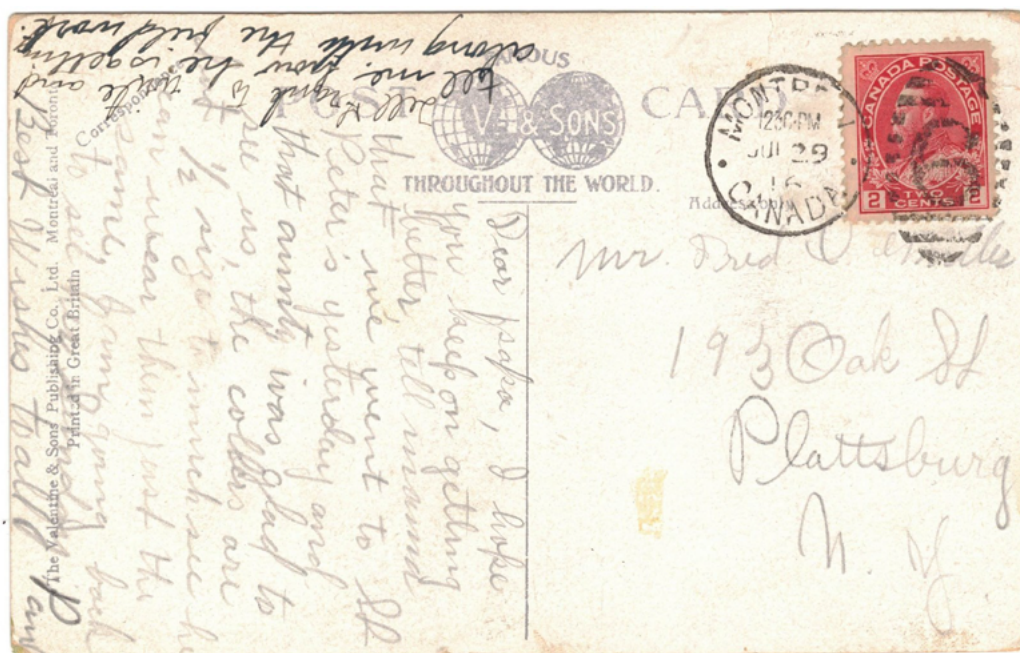 FAMOUS
POST CARD
V. & SONS
THROUGHOUT THE WORLD.
Correspondence
Address only
The Valentine & Sons Publishing Co., Ltd. Montreal and Toronto
Printed in Great Britain
MONTREAL
1230 PM
JUL 29
16
CANADA
CANADA POSTAGE
2 TWO CENTS 2
Mr. Fred
193 Oak St
Plattsburg
N Y
Dear papa, I hope
you keep on getting
better, tell mama
that we went to St
Peter's yesterday and
that aunty was glad to
see us, the collars are
1/2 size to much see he
can wear then just the
same,
to see
Best Wishes to all
tell me how he is getting
along with the field work.